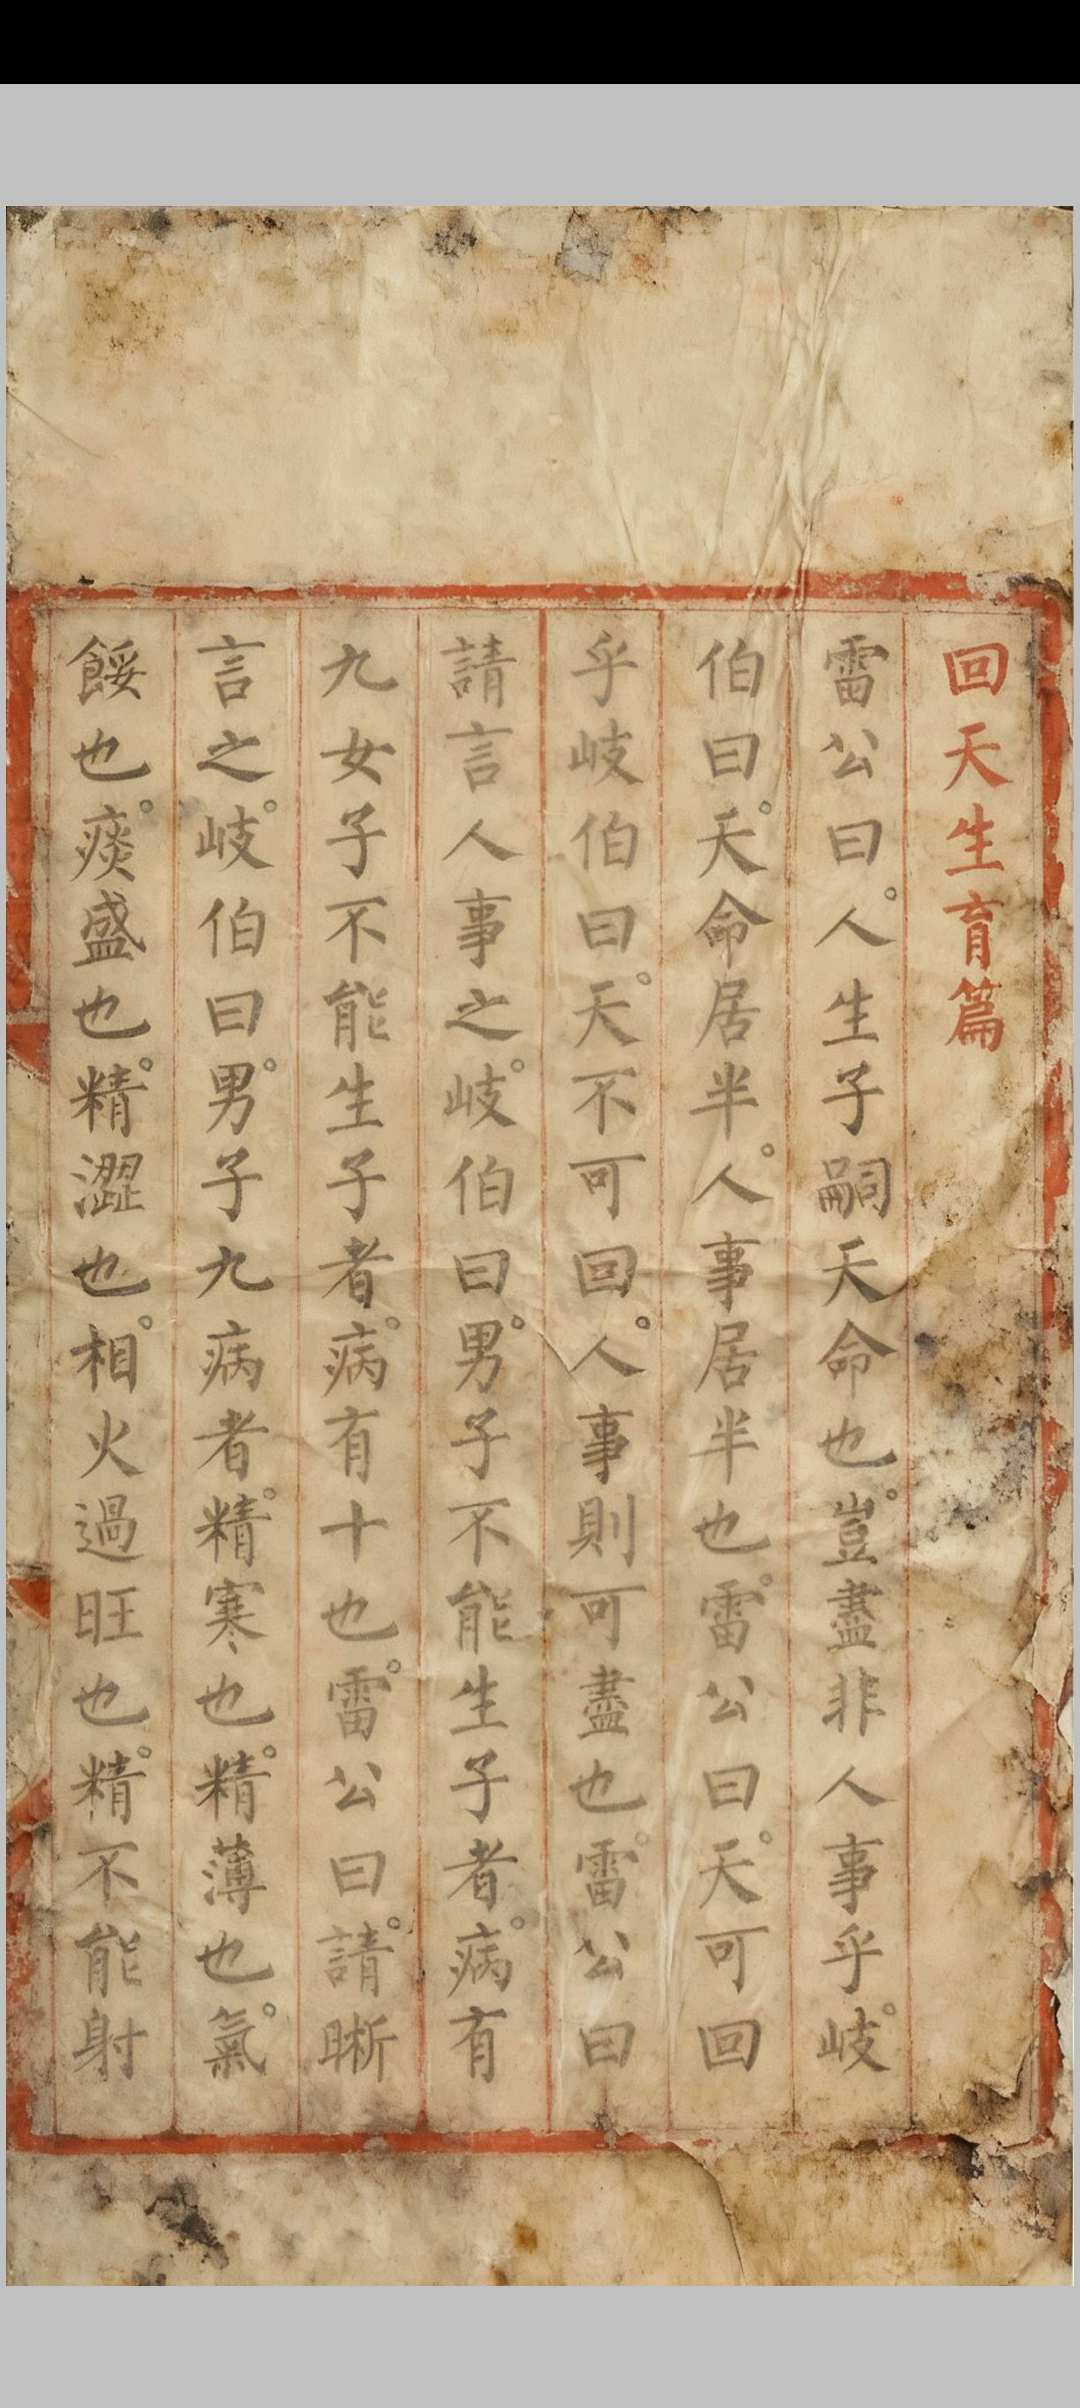 回天生育篇
雷公曰。人生子嗣天命也。豈盡非人事乎。岐
伯曰。天命居半。人事居半也。雷公曰。天可回
乎岐伯曰。天不可回。人事則可盡也。雷公曰
請言人事之。岐伯曰。男子不能生子者。病有
九女子不能生子者。病有十也。雷公曰。請晰
言之。岐伯曰。男子九病者。精寒也。精薄也。氣
餒也。痰盛也。精澀也。相火過旺也。精不能射